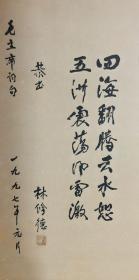 四海翻騰云水怒
五洲震蕩风雷激
毛主席词句
恭书
林修德
一九九七年元月